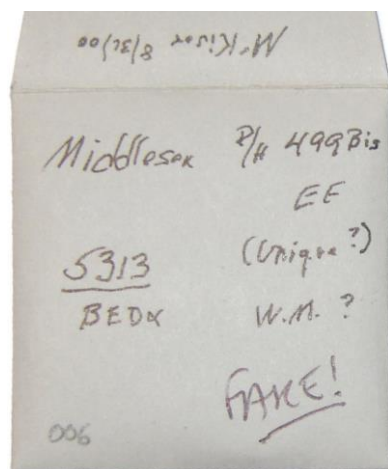 McKivor 8/31/00
Middlesex D/H 499 Bis
EE
(Unique?)
5313
BEDα W.M. ?
FAKE!
006